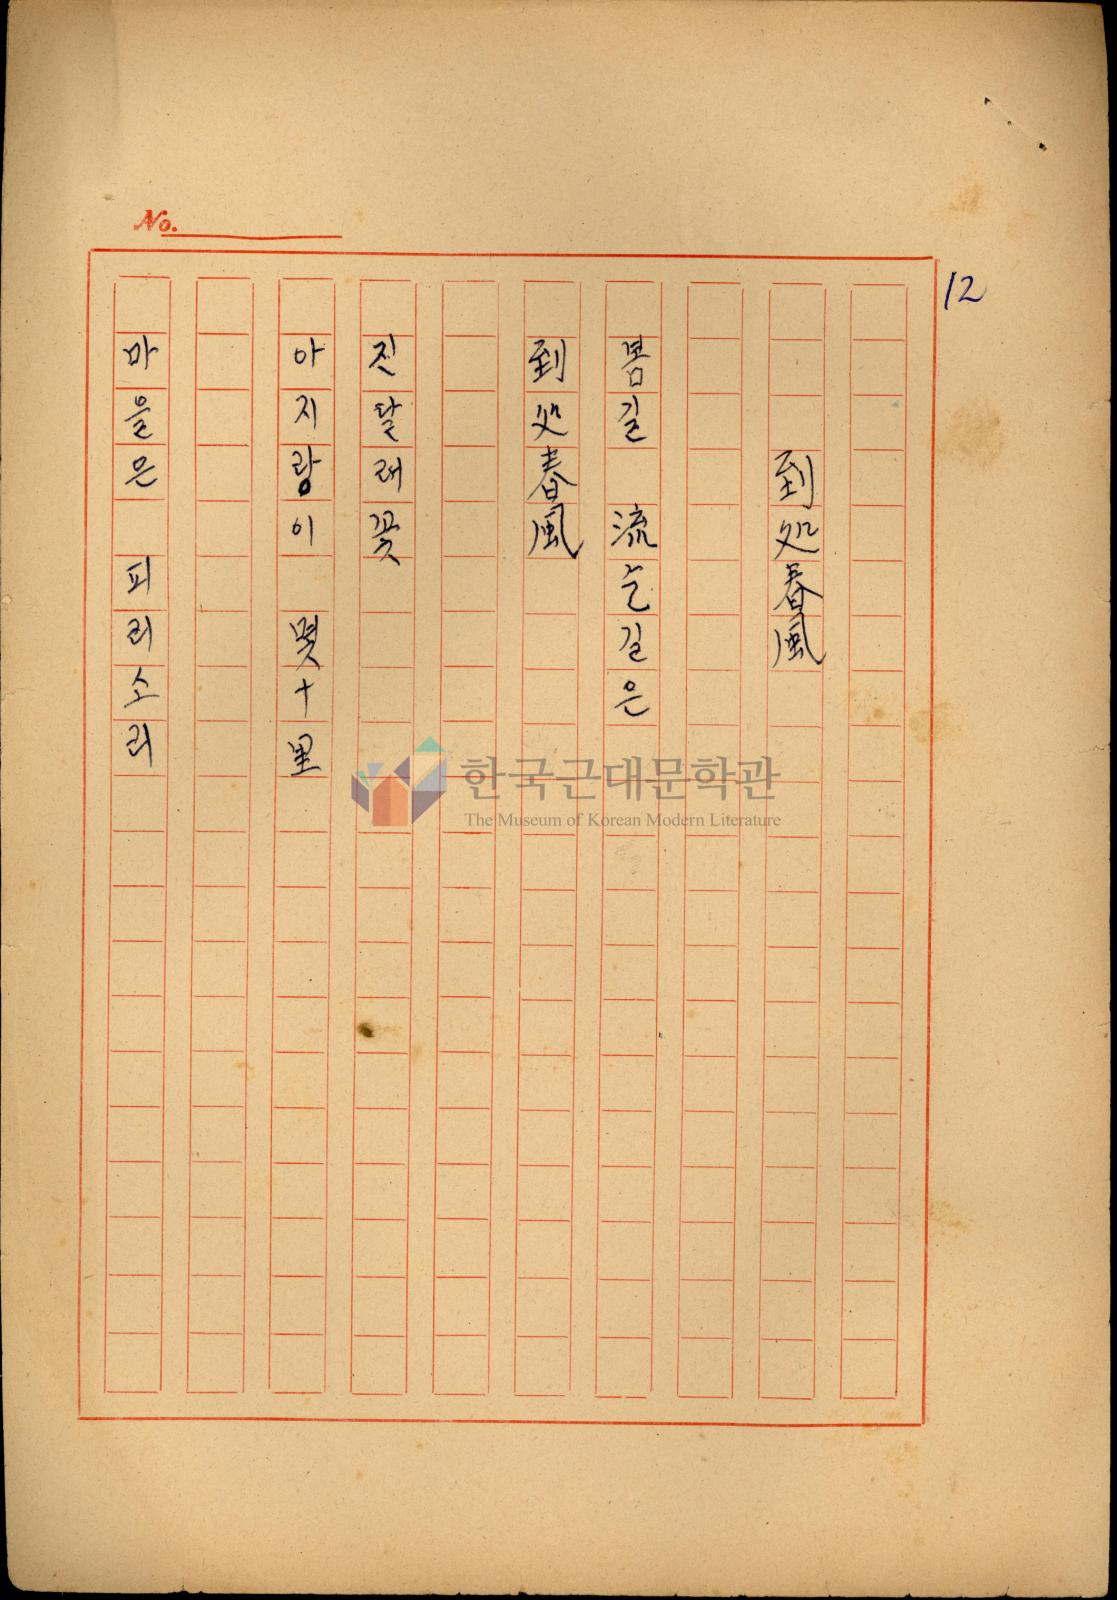 No.
12
到処春風
봄길 流는길은
到処春風
진달래꽃
아지랑이 몇十里
마을은 피리소리
한국근대문학관
The Museum of Korean Modern Literature